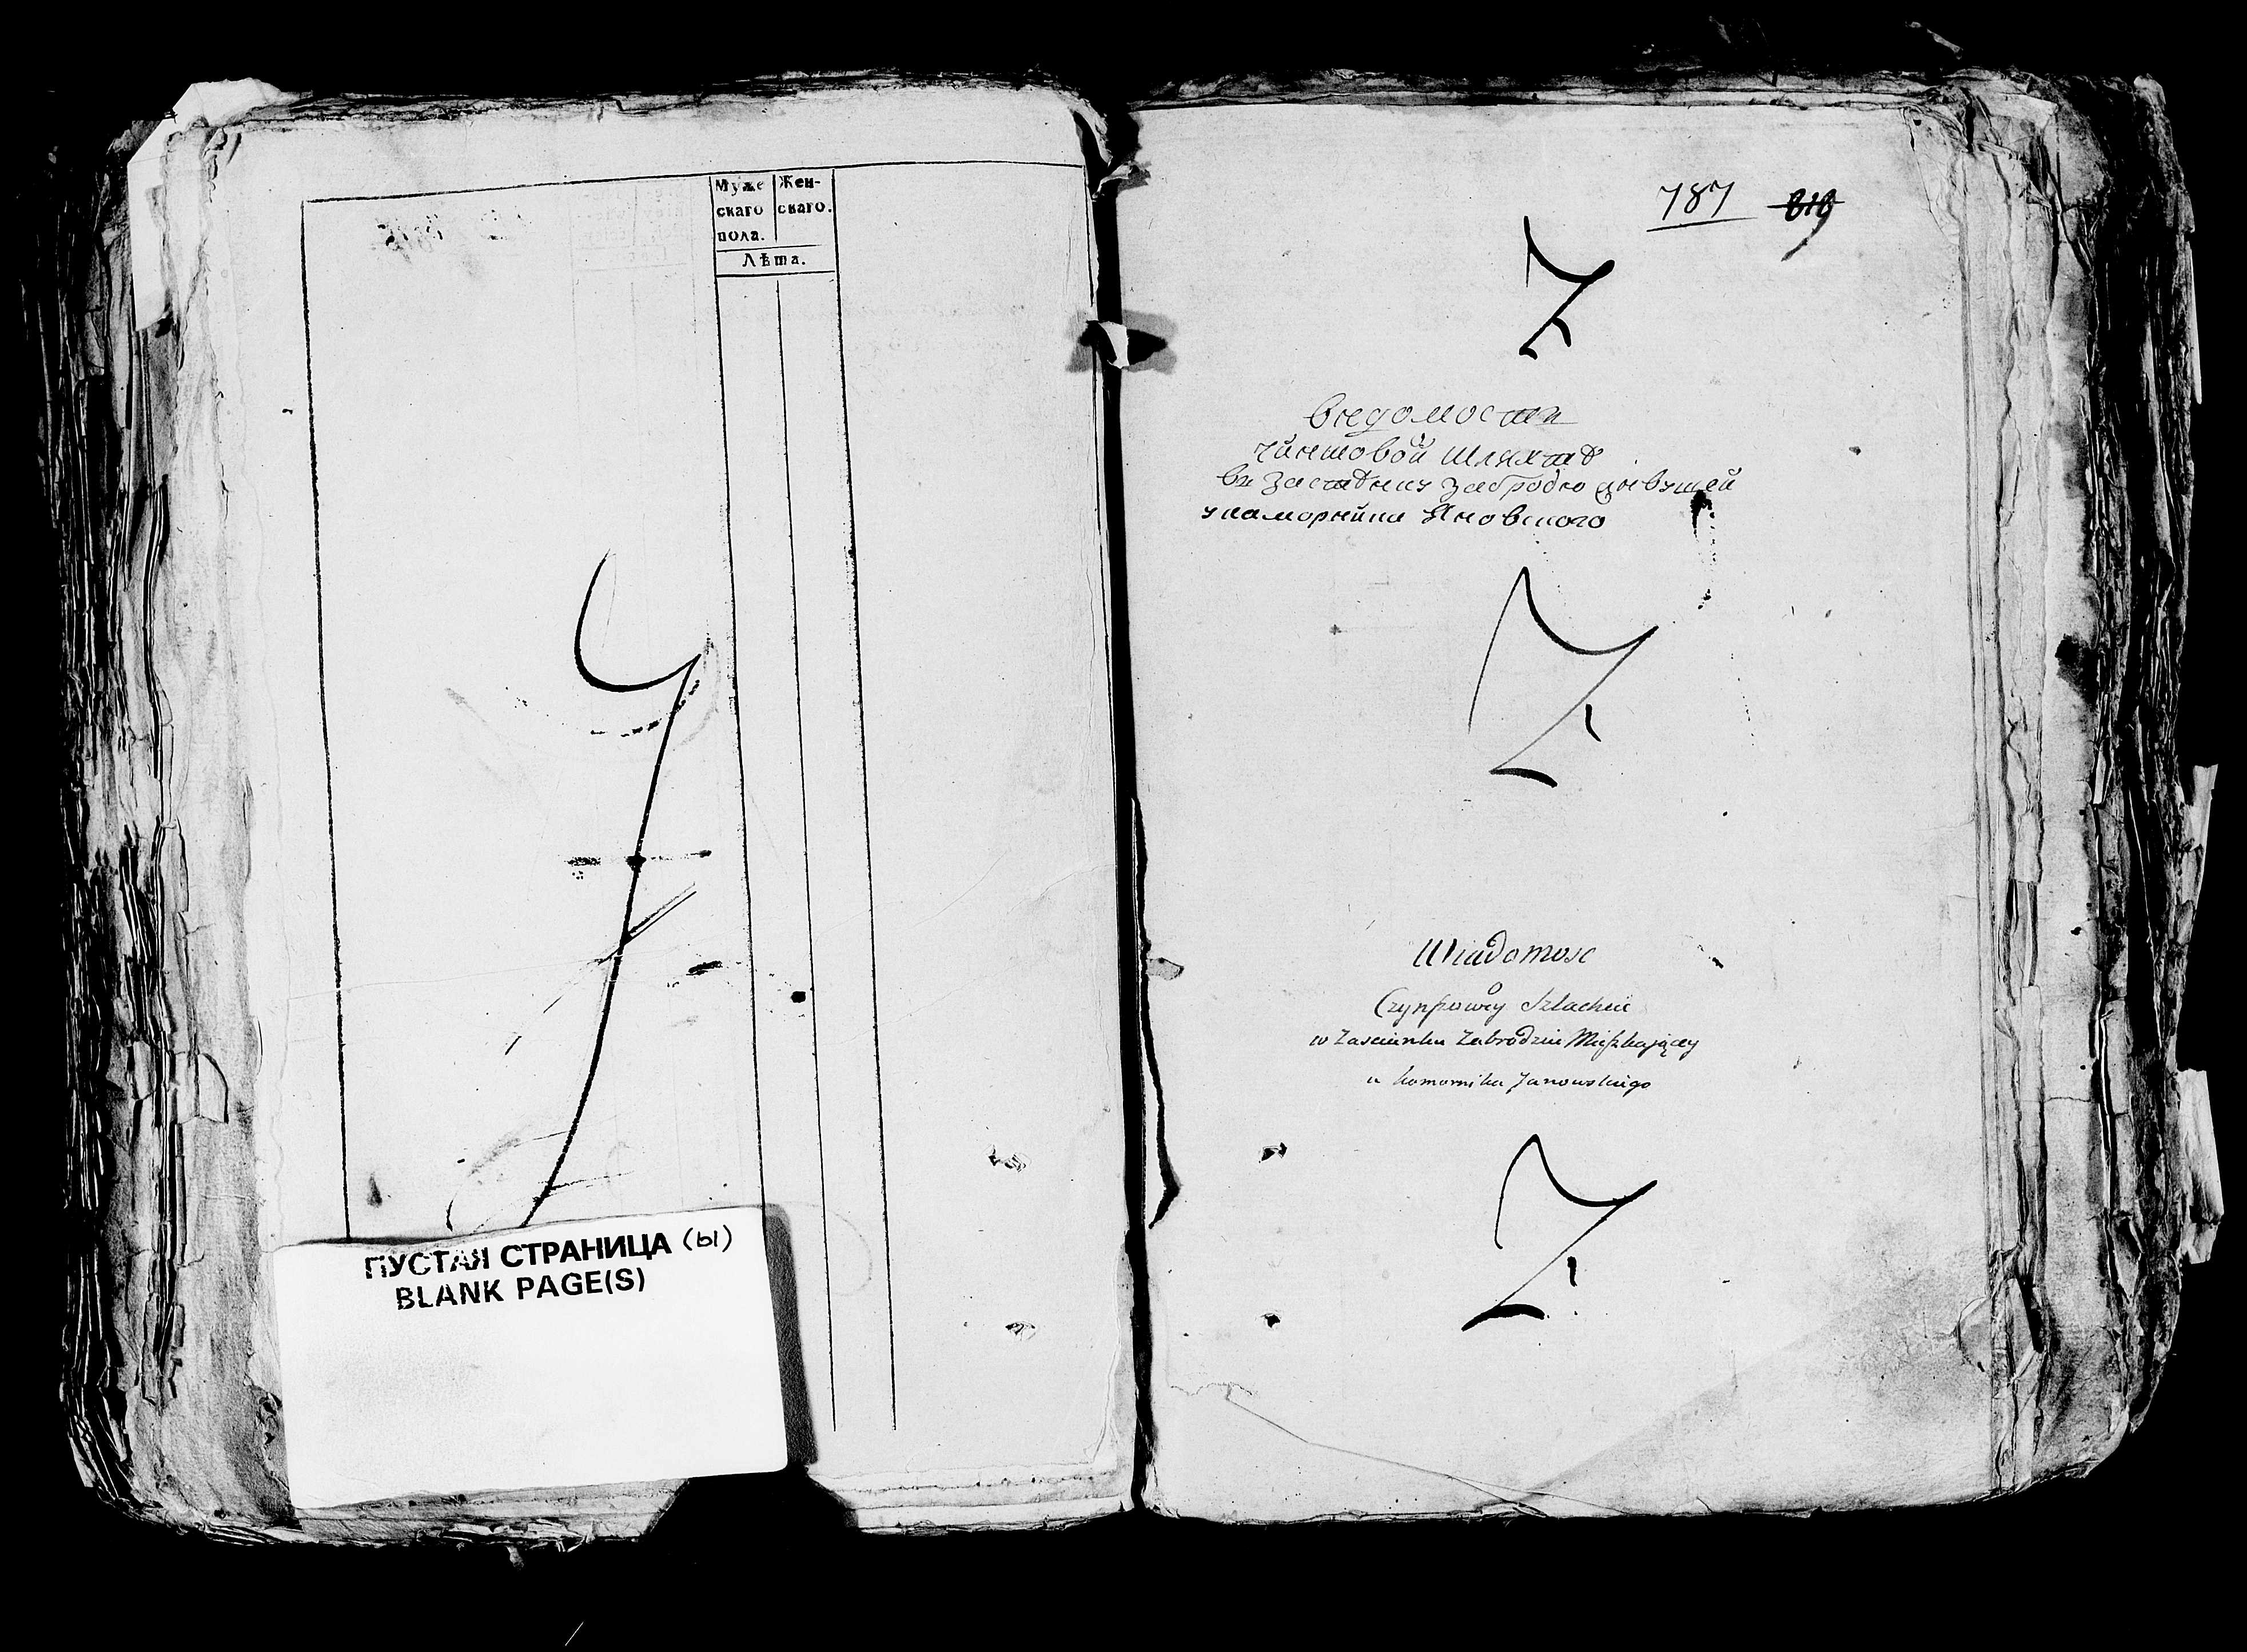 Муже
скаго
пола.
Жен-
скаго.
Лѣта.
ПУСТАЯ СТРАНИЦА (ы)
BLANK PAGE(S)
787 819
Ведомости
чиншовой шляхтѣ
въ застѣнку Забродю живущей
у каморника Яновского
Wiadomosc
Czynszowey Szlachcie
w Zascianku Zabrodziu Mieszkaiącey
u komornika Janowskiego